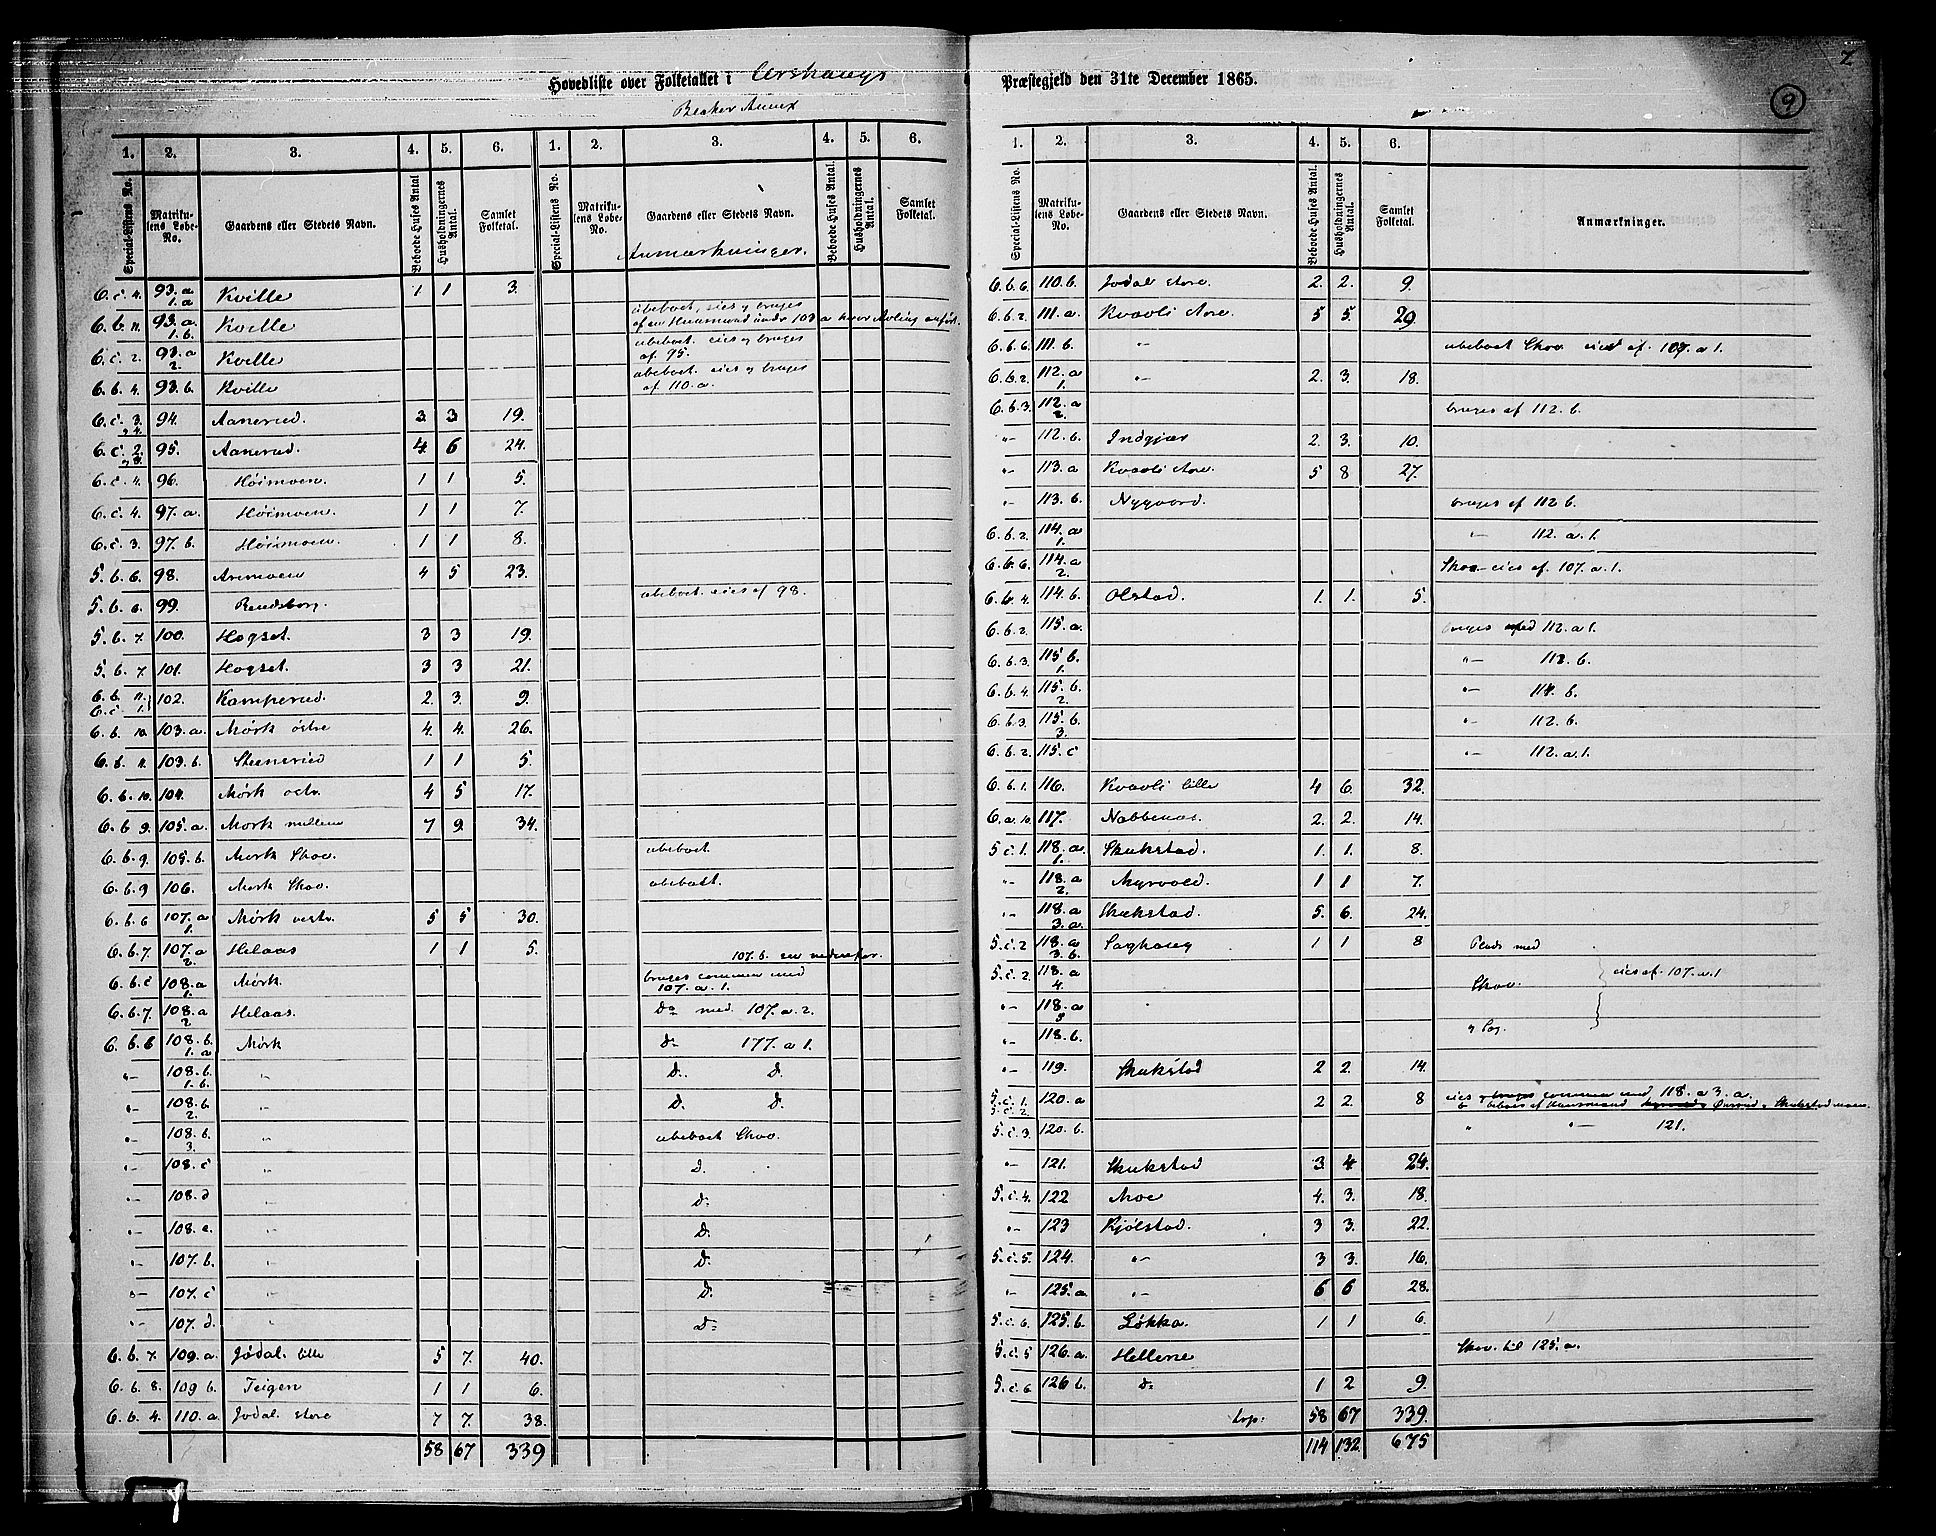 Hovedliste over Folketallet i Urskougs Præstegjeld den 31te December 1865.
Blaker Annex
9
1. 2. 3. 4. 5. 6. 1. 2. 3. 4. 5. 6.
Special-Listens No. Matrikulens Løbe-No. Gaardens eller Stedets Navn. Beboede Huses Antal Husholdningernes Antal. Samlet Folketal. Special-Listens No. Matrikulens Løbe-No. Gaardens eller Stedets Navn. Beboede Huses Antal. Husholdningernes Antal. Samlet Folketal.
Anmærkninger.
6. c. 4. 93. a 1. a Kville 1 1 3.
6. b. 11. 93. a. 1. b. Kville ubeboet, eies og bruges af en Huusmand under 103 a hvor Avling anført.
6. c. 2. 93. a 2. Kville ubeboet. eies og bruges af 95.
6. b. 4. 93. b. Kville ubeboet. eies og bruges af 110. a.
6. c. 3. 94. Aanerud. 3 3 19.
6. c. 2. 95. Aanerud. 4. 6 24.
6. c. 4. 96. Høimoen 1 1 5.
6. c. 4. 97. a. Høimoen. 1 1 7.
6. c. 3. 97. b. Høimoen. 1 1 8.
5. b. 6. 98. Arnmoen 4 5 23.
5. b. 6. 99. Rendsborg. ubeboet. eies af 98.
5. b. 7. 100. Hogset. 3 3 19.
5. b. 7 101. Hogset. 3 3 21.
6. b. 11. 6. c. 1. 102. Kamperud. 2. 3. 9.
6. b. 10. 103. a. Mørk østre 4. 4. 26.
6. b. 11. 103. b. Steenerud 1 1 5.
6. b. 10. 104. Mørk østr. 4 5 17.
6. b 9. 105. a. Mørk mellem 7 9. 34.
6. b. 9. 105. b. Mørk Skov. ubeboet.
6. b. 9 106. Mørk Skov. ubeboet.
6. b. 6 107. a 1. Mørk vestr. 5 5 30.
6. b. 7. 107. a 2. Helaas 1 1 5. 107. b. see nedenfor.
6. b. 6 108. a 1. Mørk. bruges sammen med 107. a. 1.
6. b. 7. 108. a 2 Helaas. do med 107. a. 2.
6. b. 6 108. b. 1. a Mørk d- 177. a 1.
"- 108. b. 1. b. " D. D.
"- 108. b. 2. " D. D.
"- 108. b. 3. " ubeboet Skov.
"- 108. c " D.
"- 108. d " D.
"- 108. e. " D.
"- 107. b. " D.
"- 107. c " D.
"- 107. d. " d-
6. b. 7. 109. a. Jødal. lille 5 7. 40.
6. b. 8. 109 b. Teigen 1 1 6.
6. b. 4. 110. a. Jødal store 7 7. 38.
58 67 339
1. 2. 3. 4. 5. 6.
Special-Listens No. Matrikulens Løbe-No. Gaardens eller Stedets Navn. Beboede Huses Antal. Husholdningernes Antal. Samlet Folketal. Anmærkninger.
6. b. 6. 110. b. Jødal store. 2. 2. 9.
6. b. 2. 111. a. Kvavli store. 5 5. 29.
6. b. 6. 111. b. "- ubeboet Skov eies af. 107. a 1.
6. b. 2. 112. a 1. "- 2. 3. 18.
6. b. 3. 112. a 2. bruges af 112. b.
"- 112. b. Indgjær 2. 3. 10.
"- 113. a Kvavli store. 5 8 27.
"- 113. b. Nygaard. bruges af 112 b.
6. b. 2. 114. a 1. "- 112. a. 1.
6. b. 6. 114. a 2. Skov- eies af. 107. a. 1.
6. b. 4. 114. b. Olstad. 1. 1. 5.
6. b. 2. 115. a. bruges med 112. a 1.
6. b. 3. 115 b. 1. "- 112. b.
6. b. 4. 115. b. 2. "- 114. b.
6. b. 3. 115. b. 3. "- 112. b.
6. b. 2. 115. c "- 112. a. 1.
6. b. 1. 116. Kvavli lille 4 6. 32.
6. a. 10. 117. Nabbenæs. 2. 2. 14.
5 c. 1. 118. a. 1. Skukstad. 1. 1. 8.
"- 118. a 2. Myrvold. 1 1 7.
"- 118. a 3. a. Skukstad. 5. 6. 24.
5. c. 2 118. a 3. b. Saghaug 1 1 8 Plads med
5. c. 2. 118. a 4. Skov. eies af. 107. a. 1
"- 118. a 5
"- 118. b. " Sag.
"- 119. Skukstad 2 2. 14.
5. c. 1. 5. c. 2. 120. a 2 2. 8 eies og bruges sammen med 118. a 3. a.
5. c. 3. 120. b. " "- 121.
"- 121. Skukstad 3. 4 24.
5. c. 4. 122 Moe 4. 3. 18.
"- 123 Kjølstad. 3 3. 22.
5. c. 5. 124. "- 3 3. 16.
"- 125. a 6 6 28.
5. c. 6. 125. b. Løkka. 1 1 6.
5. c. 5 126. a. Hellene Skov. til 125. a.
5. c. 6. 126 b. d- 1 2 9.
Trsp: 58 67 339.
114 132. 675